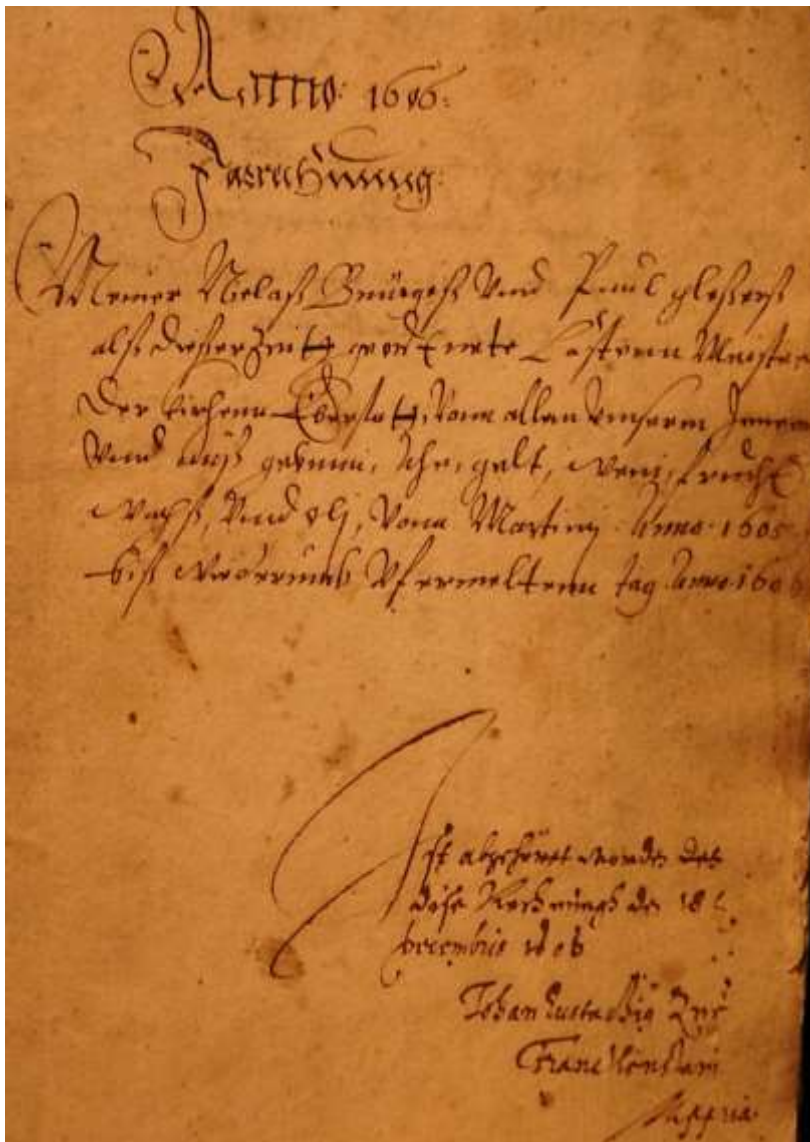 Anno: 1606:
Jarrechnung
Meiner Niclaß Bürgeß Vnd Paul gleßerß
alß dießer Zeitt geordnete Casteñ Meister
Der kirchenn Eberstatt, Vonn allen Vnserm
Vnd auß gebenn, Ahn, gelt, wein, frucht
wachß, Vnd olj, Vonn Martinj Anno 1605
biß wiederumb Vf ermeltenn tag Anno 160
Ist abgehöret worden
diße Rechnungh den 18
Decembris 1606
Johan
Franc